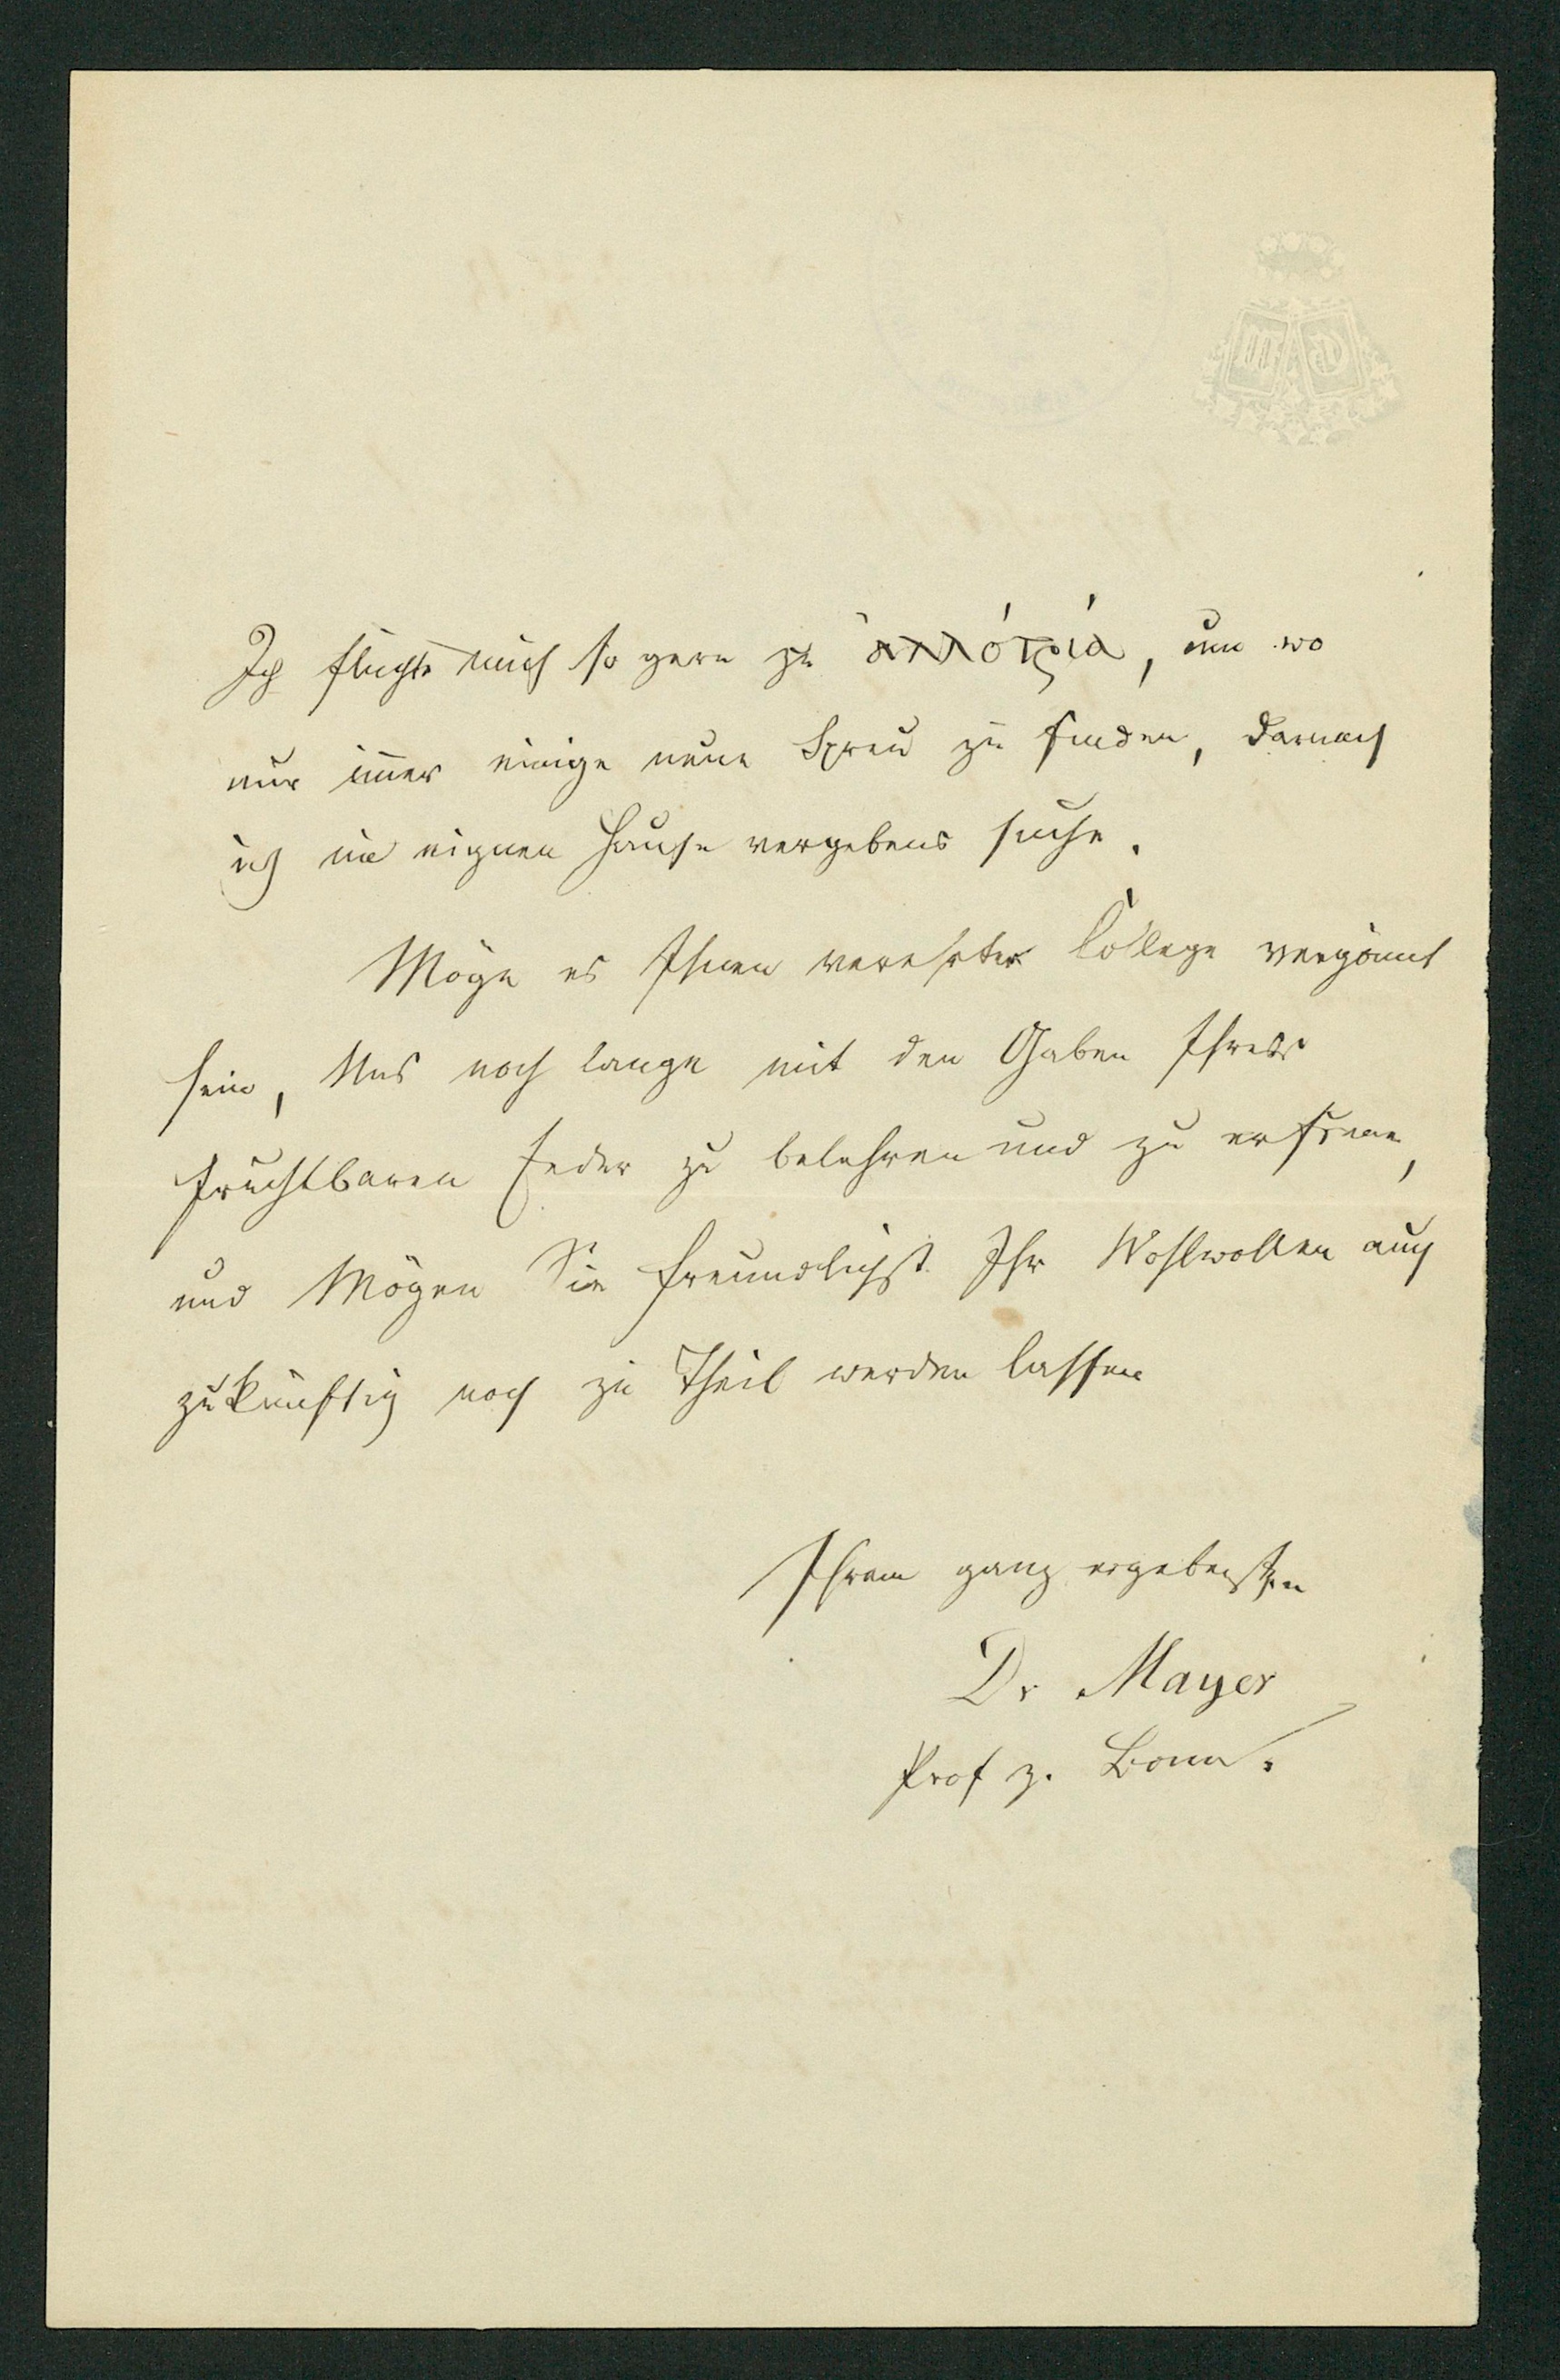 Ich flüchte mich so gern zu ἀλλότρια, um wo
nur im̄er einige neue Spreu zu finden, darnach
ich im eignen Hause vergebens suche.
Möge es Ihnen verehrter College vergönnt
sein, Uns noch lange mit den Gaben Ihrer
fruchtbaren Feder zu belehren und zu erfreuen,
und Mögen Sie freundlichst Ihr Wohlwollen auch
zukünftig noch zu Theil werden lassen
Ihrem ganz ergebensten
Dr Mayer
Prof z. Bonn.